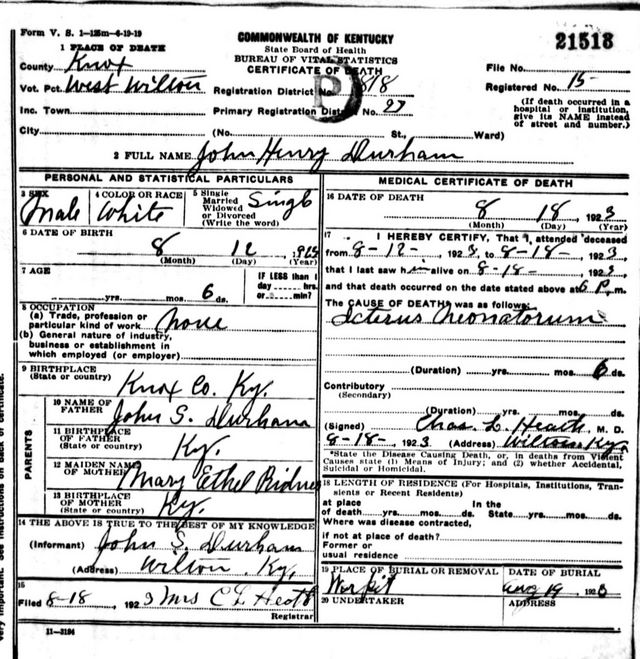 Form V. S. 1-125m-4-19-19
COMMONWEALTH OF KENTUCKY
State Board of Health
BUREAU OF VITAL STATISTICS
CERTIFICATE OF DEATH
21518
1 PLACE OF DEATH
County Knox
Vot. Pct. West Wilton
Inc. Town
City
(No. St., Ward)
Registration District No. 818
Primary Registration District No. 27
P
File No.
Registered No. 15-
(If death occurred in a
hospital or institution,
give its NAME instead
of street and number.)
2 FULL NAME John Henry Durham
PERSONAL AND STATISTICAL PARTICULARS
3 SEX
Male
4 COLOR OR RACE
White
5 Single
Married
Widowed
or Divorced
(Write the word)
Single
6 DATE OF BIRTH
8 12 1923
(Month) (Day) (Year)
7 AGE
yrs. mos. 6 ds.
IF LESS than 1
day hrs.
or min?
8 OCCUPATION
(a) Trade, profession or
particular kind of work none
(b) General nature of industry,
business or establishment in
which employed (or employer)
9 BIRTHPLACE
(State or country)
Knox Co. Ky.
PARENTS
10 NAME OF
FATHER
John S. Durham
11 BIRTHPLACE
OF FATHER
(State or country)
Ky.
12 MAIDEN NAME
OF MOTHER
Mary Ethel
13 BIRTHPLACE
OF MOTHER
(State or country)
Ky.
14 THE ABOVE IS TRUE TO THE BEST OF MY KNOWLEDGE
(Informant) John S. Durham
(Address) Wilton Ky.
15
Filed 8-18 1923 Mrs C L Heath
Registrar
11-3194
MEDICAL CERTIFICATE OF DEATH
16 DATE OF DEATH
8 18, 1923
(Month) (Day) (Year)
17 I HEREBY CERTIFY, That I attended deceased
from 8-12-, 1923, to 8-18-, 1923
that I last saw him alive on 8-18-, 1923,
and that death occurred on the date stated above at 6 P.m.
The CAUSE OF DEATH was as follows:
Icterus Neonatorum
(Duration) yrs. mos. 6 ds.
Contributory
(Secondary)
(Duration) yrs. mos. ds.
(Signed) Chas. L. Heath, M. D.
8-18-, 1923 (Address) Wilton Ky.
*State the Disease Causing Death, or, in deaths from Violent
Causes state (1) Means of Injury; and (2) whether Accidental,
Suicidal or Homicidal.
18 LENGTH OF RESIDENCE (For Hospitals, Institutions, Tran-
sients or Recent Residents)
at place In the
of death yrs. mos. ds. State yrs. mos. ds.
Where was disease contracted,
if not at place of death?
Former or
usual residence
19 PLACE OF BURIAL OR REMOVAL
DATE OF BURIAL
Aug 19, 1923
20 UNDERTAKER
ADDRESS